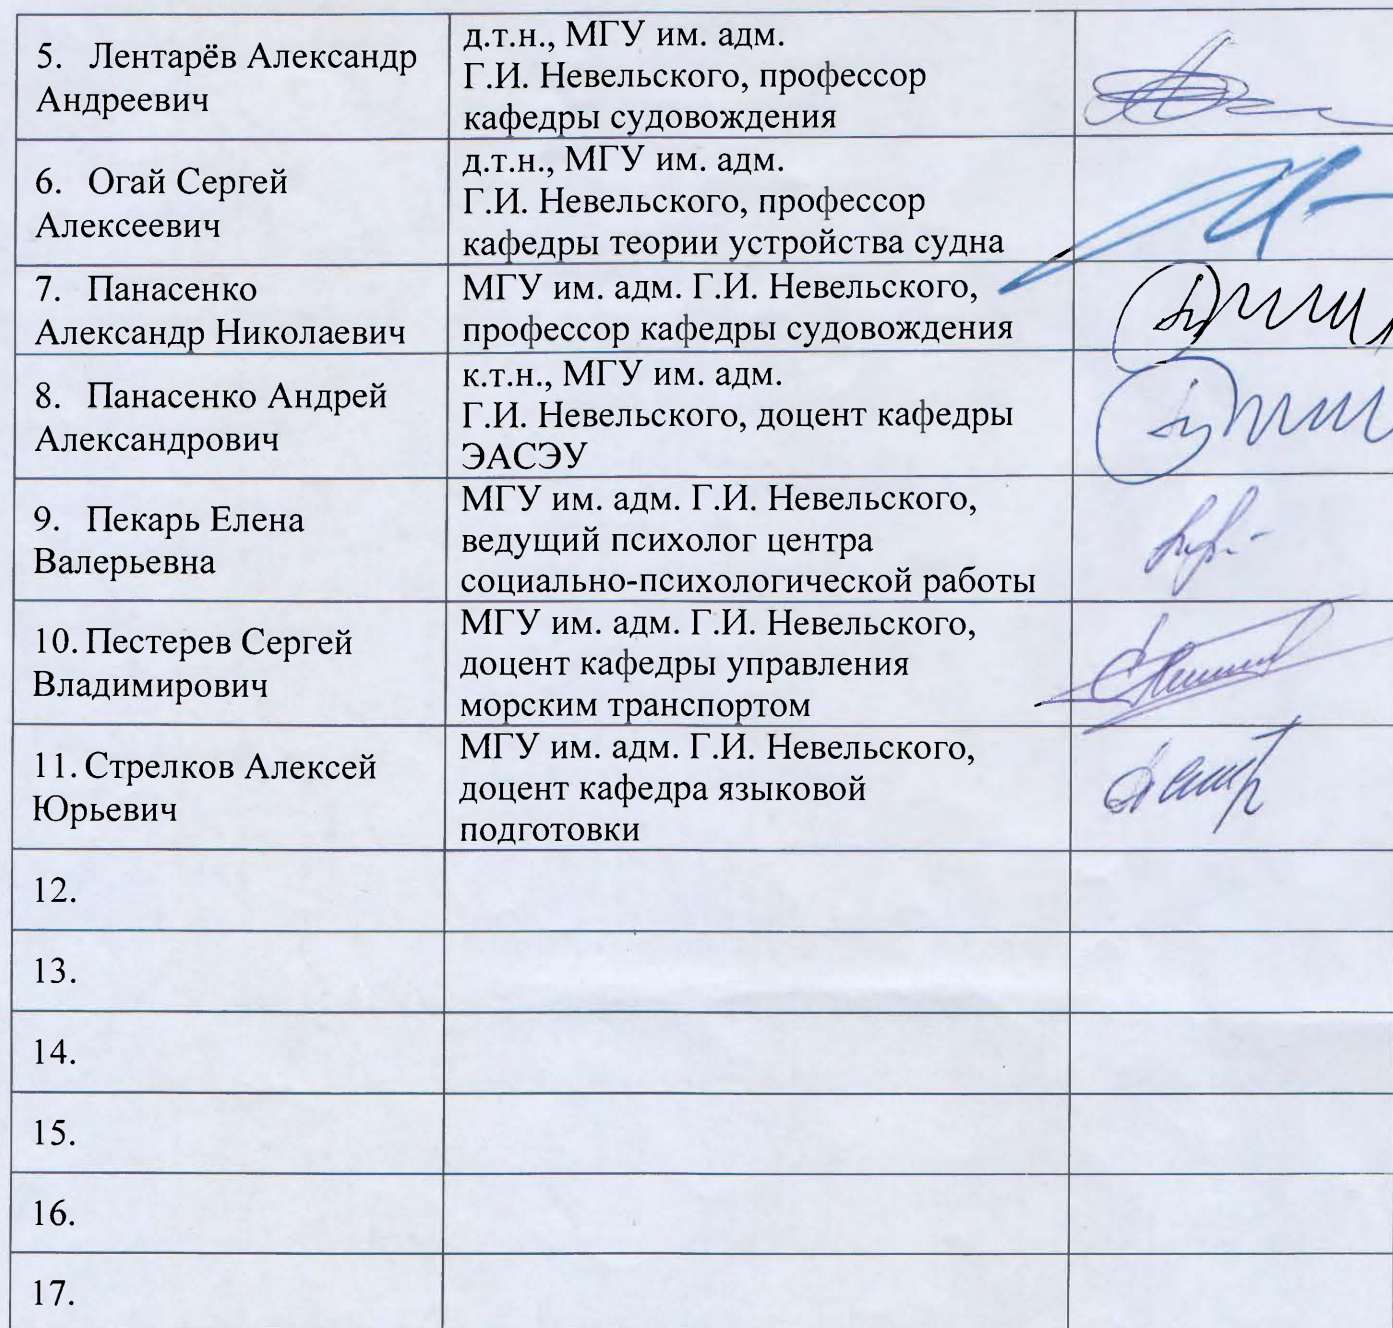 5. Лентарёв Александр
Андреевич
д.т.н., МГУ им. адм.
Г.И. Невельского, профессор
кафедры судовождения
6. Огай Сергей
Алексеевич
д.т.н., МГУ им. адм.
Г.И. Невельского, профессор
кафедры теории устройства судна
7. Панасенко
Александр Николаевич
МГУ им. адм. Г.И. Невельского,
профессор кафедры судовождения
8. Панасенко Андрей
Александрович
к.т.н., МГУ им. адм.
Г.И. Невельского, доцент кафедры
ЭАСЭУ
9. Пекарь Елена
Валерьевна
МГУ им. адм. Г.И. Невельского,
ведущий психолог центра
социально-психологической работы
10. Пестерев Сергей
Владимирович
МГУ им. адм. Г.И. Невельского,
доцент кафедры управления
морским транспортом
11. Стрелков Алексей
Юрьевич
МГУ им. адм. Г.И. Невельского,
доцент кафедра языковой
подготовки
12.
13.
14.
15.
16.
17.